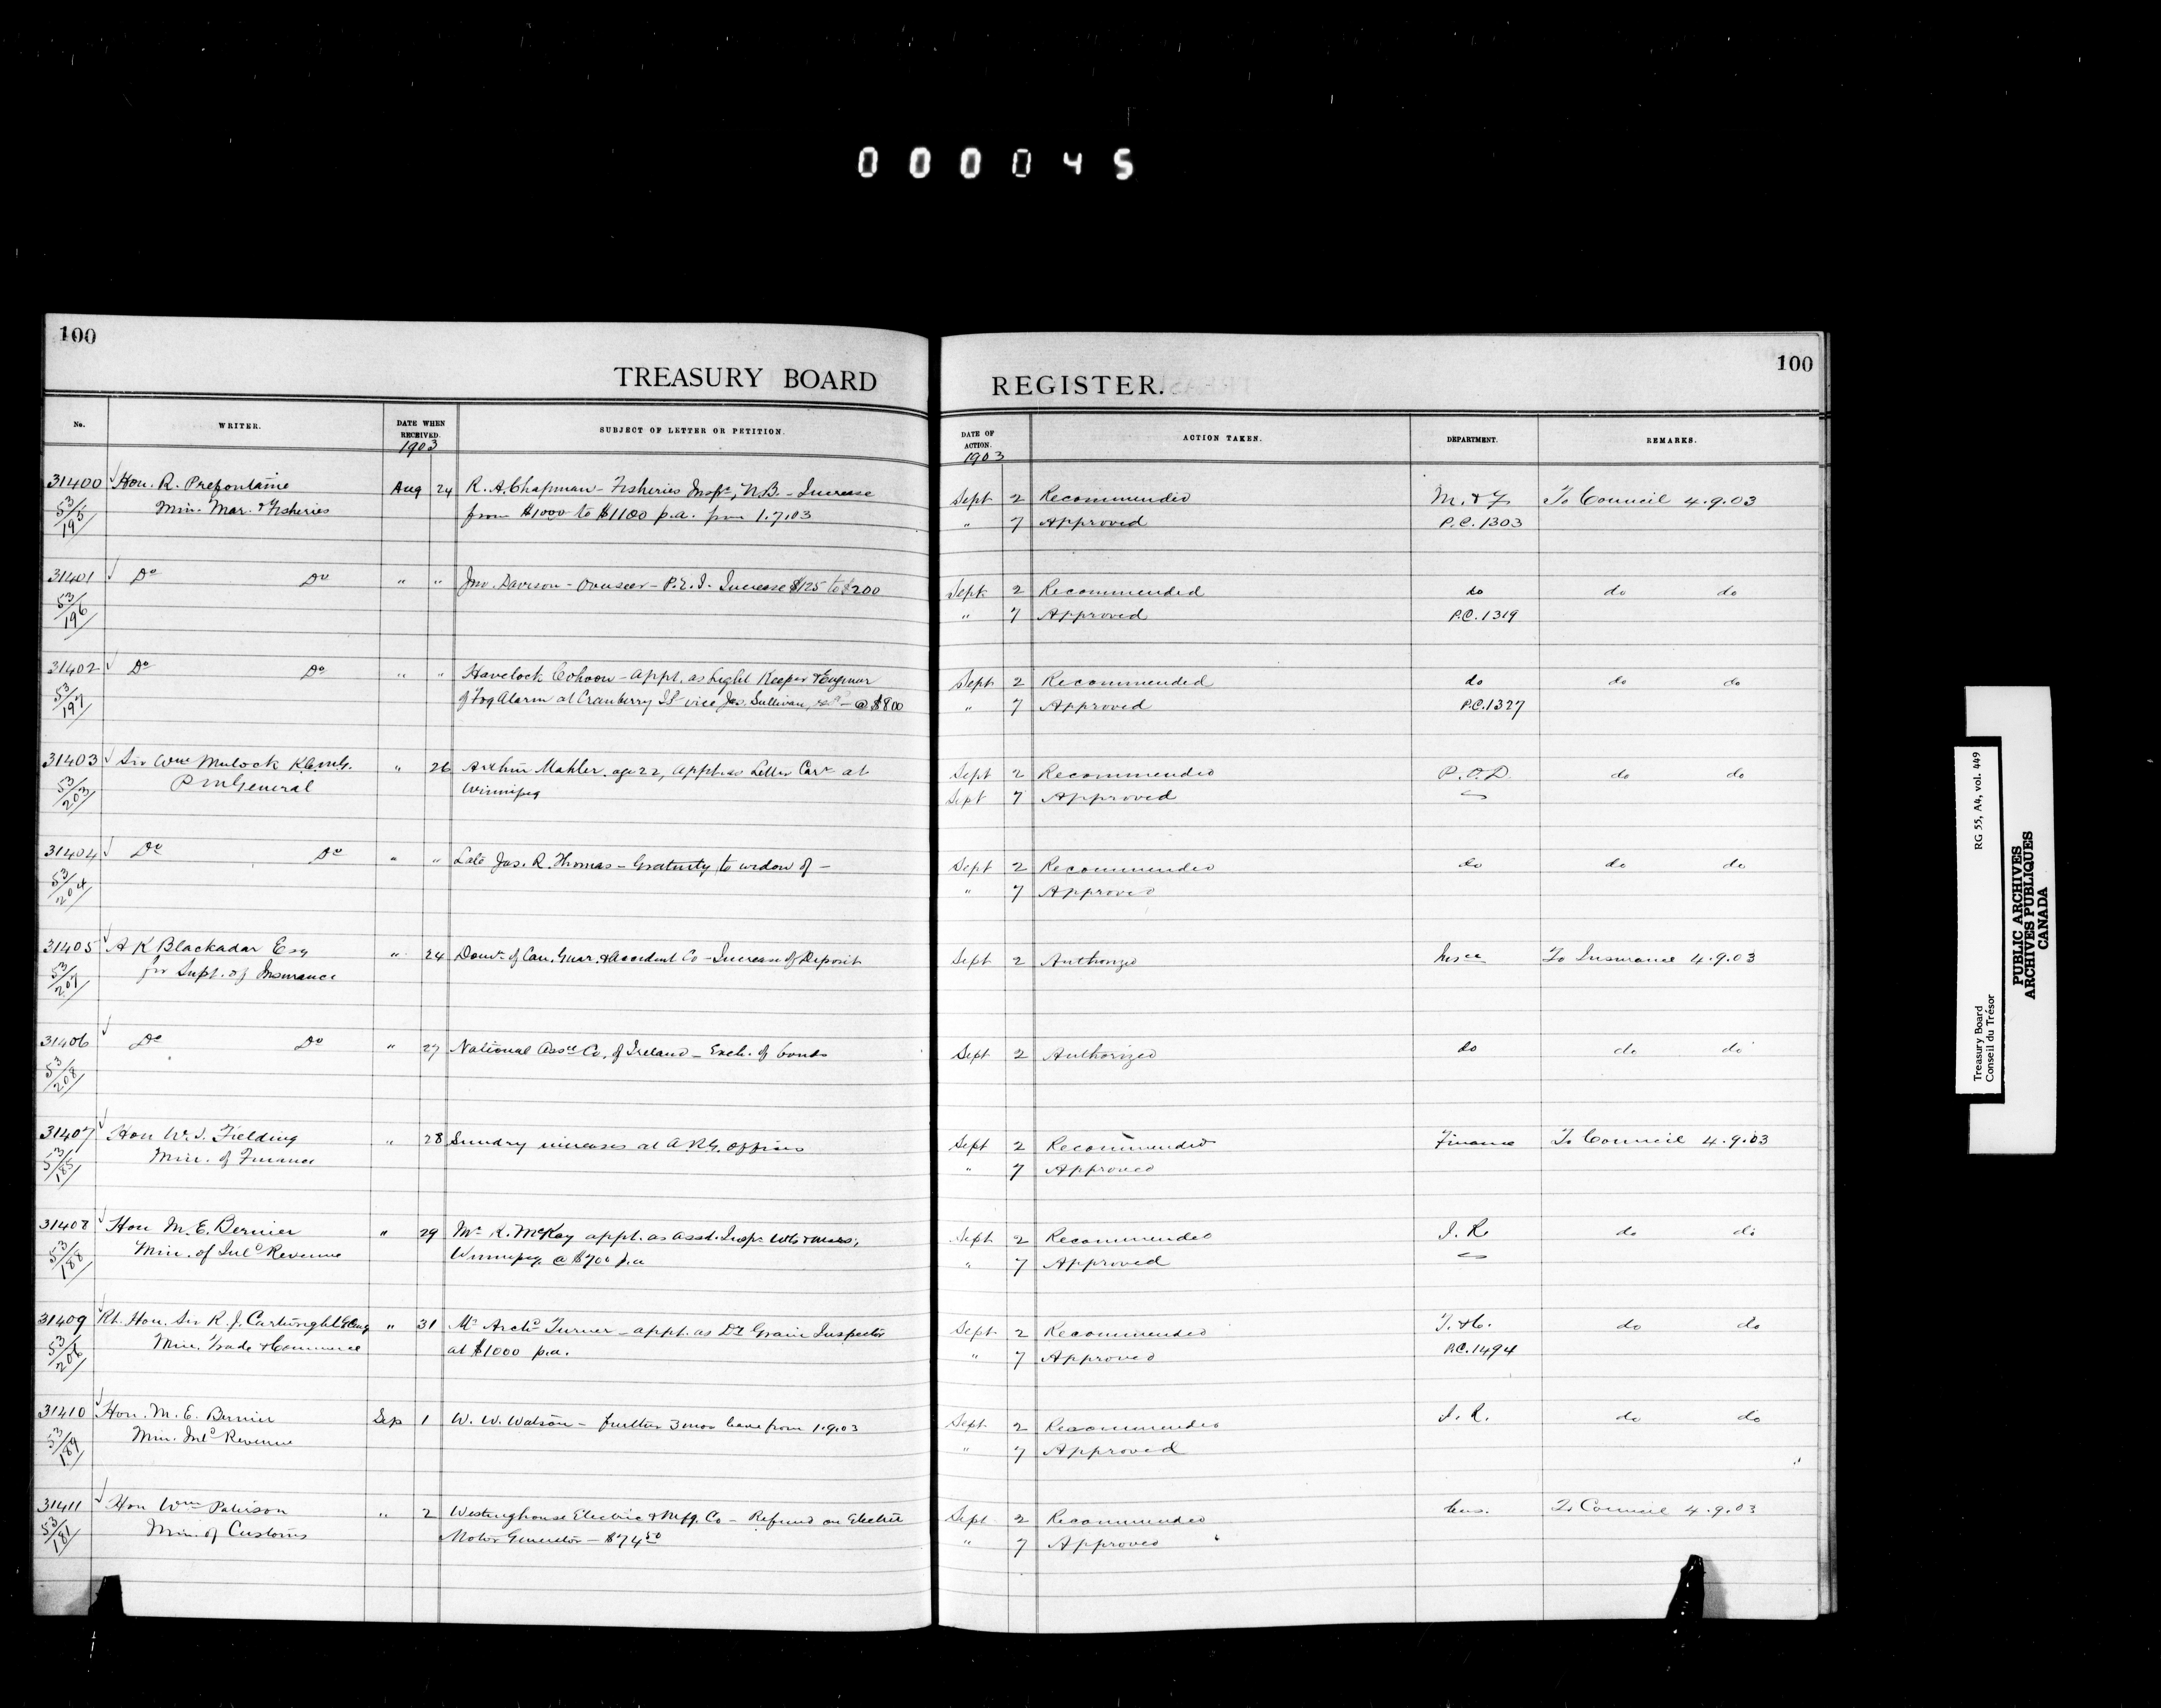 000045
100
TREASURY BOARD
REGISTER.
100
No. WRITER. DATE WHEN RECEIVED. SUBJECT OF LETTER OR PETITION. DATE OF ACTION. ACTION TAKEN. DEPARTMENT. REMARKS.
1903 1903
31400 Hon. R. Prefontaine Aug 24 R. A. Chapman - Fisheries Inspr, N.B. - Increase Sept 2 Recommended M. & F To Council 4.9.03
53/195 Min. Mar. & Fisheries from $1000 to $1100 p.a. from 1.7.03 " 7 Approved P.C. 1303
31401 Do Do " " Jno. Davison - Overseer - P.E.I. Increase $125 to $200 Sept 2 Recommended do do do
53/196 " 7 Approved P.C. 1319
31402 Do Do " " Havelock Cohoon - appt. as Light Keeper & Engineer Sept 2 Recommended do do do
53/197 of Fog Alarm at Cranberry Id vice Jas. Sullivan, - @ $800 " 7 Approved P.C. 1327
31403 Sir Wm Mulock K.C.M.G. " 26 Arthur Mahler, age 22, appt. as Letter Carr at Sept 2 Recommended P.O.D. do do
53/203 P M General Winnipeg Sept 7 Approved
31404 Do Do " " Late Jas. R. Thomas - Gratuity to widow of - Sept 2 Recommended do do do
53/204 " 7 Approved
31405 A K Blackadar Esq " 24 Domn of Can. Guar. & Accident Co - Increase of Deposit Sept 2 Authorized Insce To Insurance 4.9.03
53/207 for Supt. of Insurance
31406 Do Do " 27 National Assce Co. of Ireland - Exch. of bonds Sept 2 Authorized do do do
53/208
31407 Hon W. S. Fielding " 28 Sundry increases at A.R.G. Offices Sept 2 Recommended Finance To Council 4.9.03
53/185 Min. of Finance " 7 Approved
31408 Hon M. E. Bernier " 29 Mr K. McKay appt. as Asst. Inspr Wts & Meas, Sept 2 Recommended I. R. do do
53/188 Min. of Inld Revenue Winnipeg @ $700 p.a " 7 Approved
31409 Rt. Hon. Sir R. J. Cartwright GCMG " 31 Mr Archd Turner - appt. as Dy Grain Inspector Sept 2 Recommended T. & C. do do
53/206 Min. Trade & Commerce at $1000 p.a. " 7 Approved P.C. 1494
31410 Hon. M. E. Bernier Sep 1 W. W. Watson - further 3 mos leave from 1.9.03 Sept 2 Recommended I. R. do do
53/189 Min. Inld Revenue " 7 Approved
31411 Hon Wm Paterson " 2 Westinghouse Electric & Mfg. Co - Refund on Electric Sept 2 Recommended Cus. To Council 4.9.03
53/181 Min. of Customs Motor Generator - $74.50 " 7 Approved
Treasury Board RG 55, A4, vol. 449
Conseil du Trésor
PUBLIC ARCHIVES
ARCHIVES PUBLIQUES
CANADA